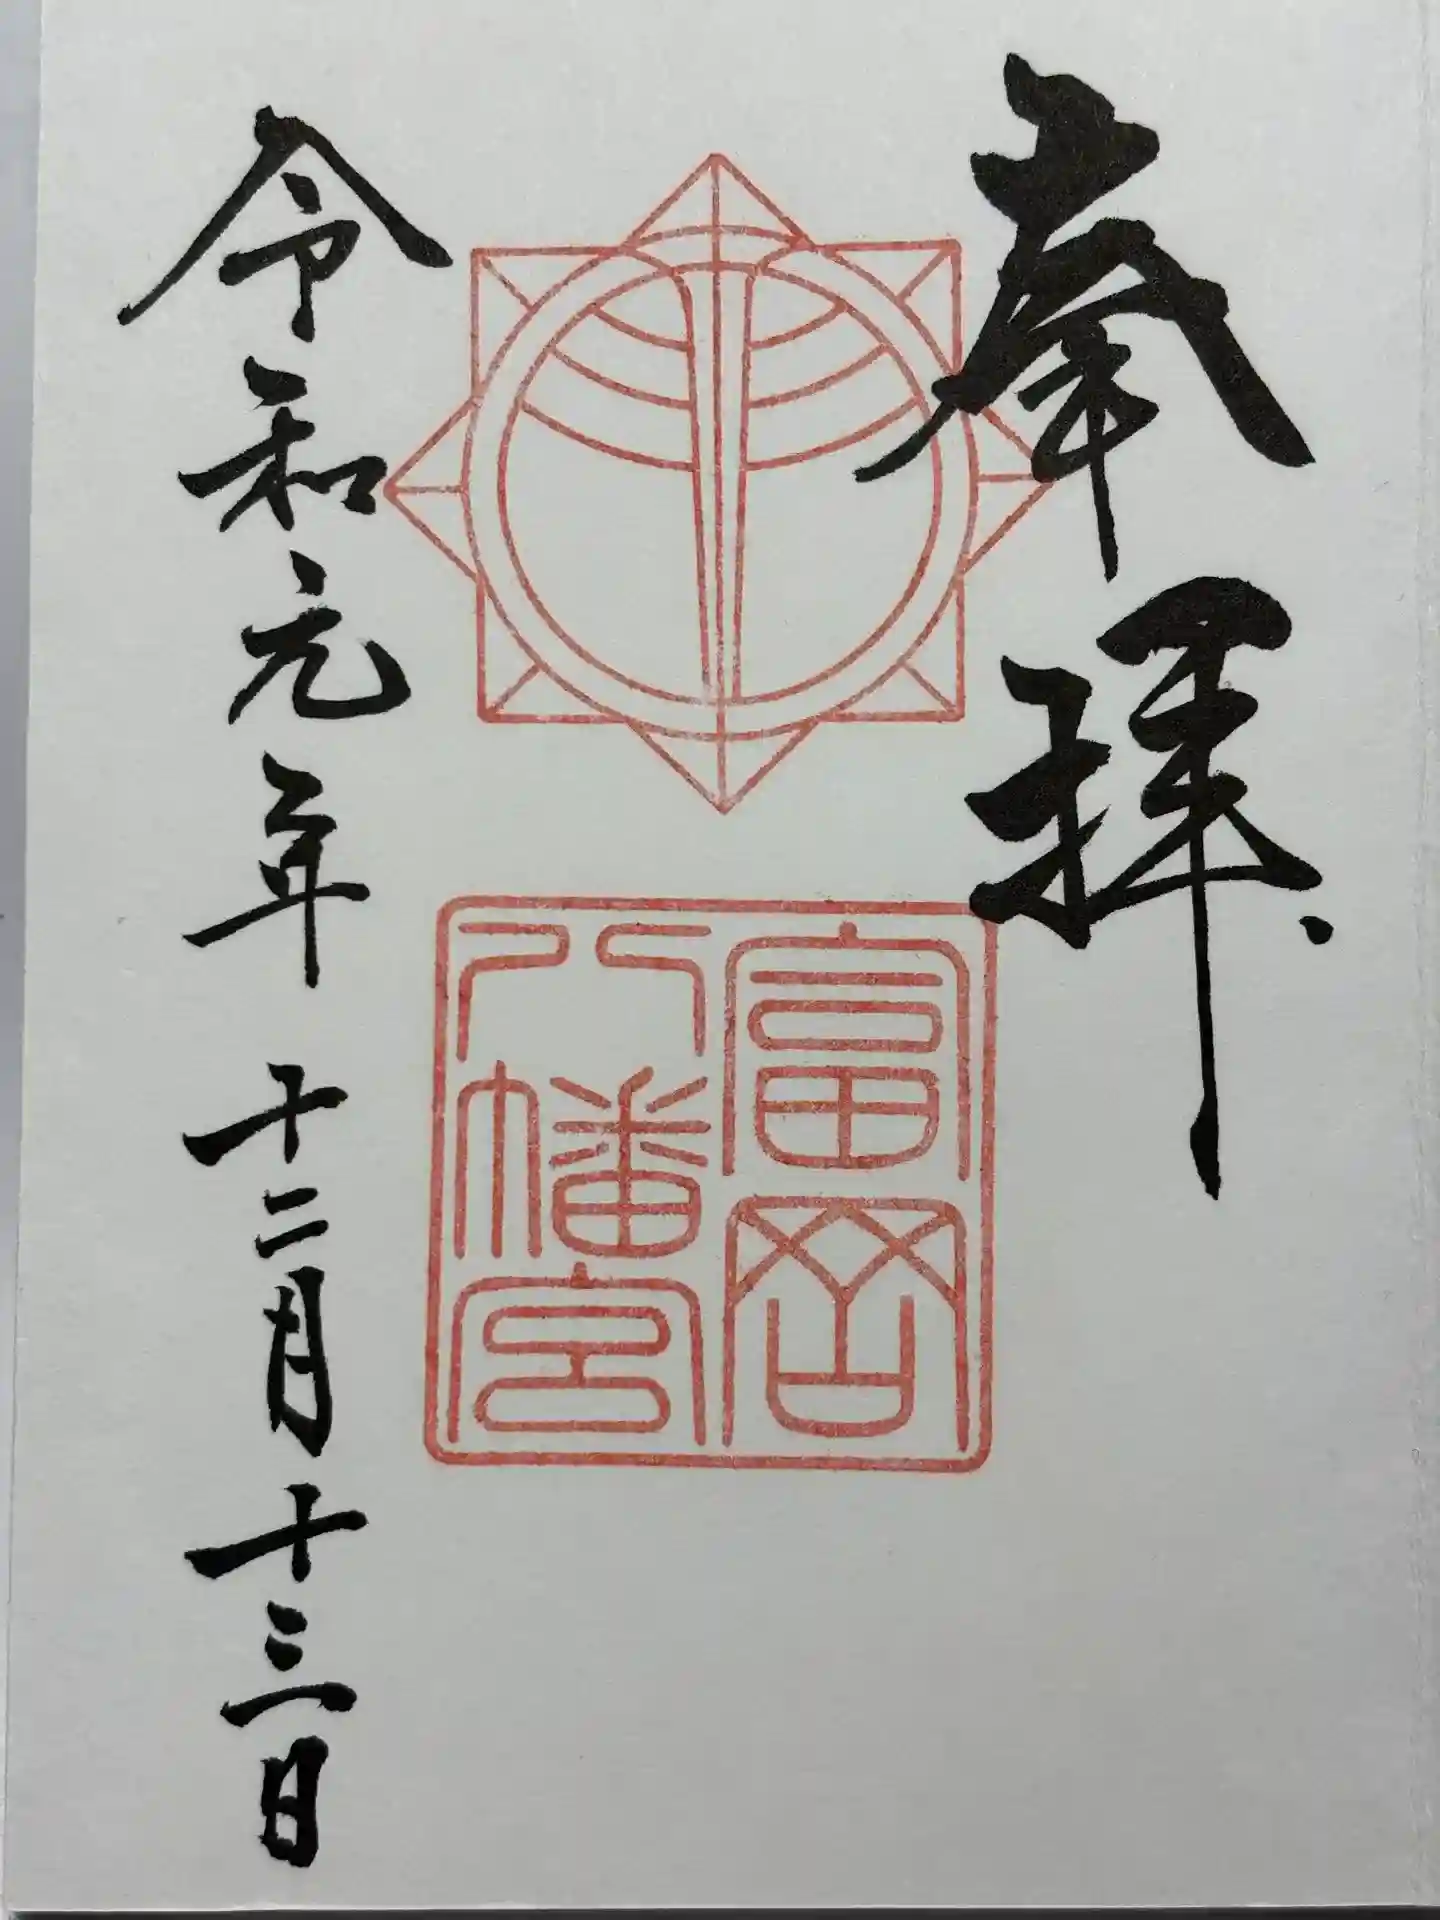 奉拝
富岡
八幡宮
令和元年 十二月十三日